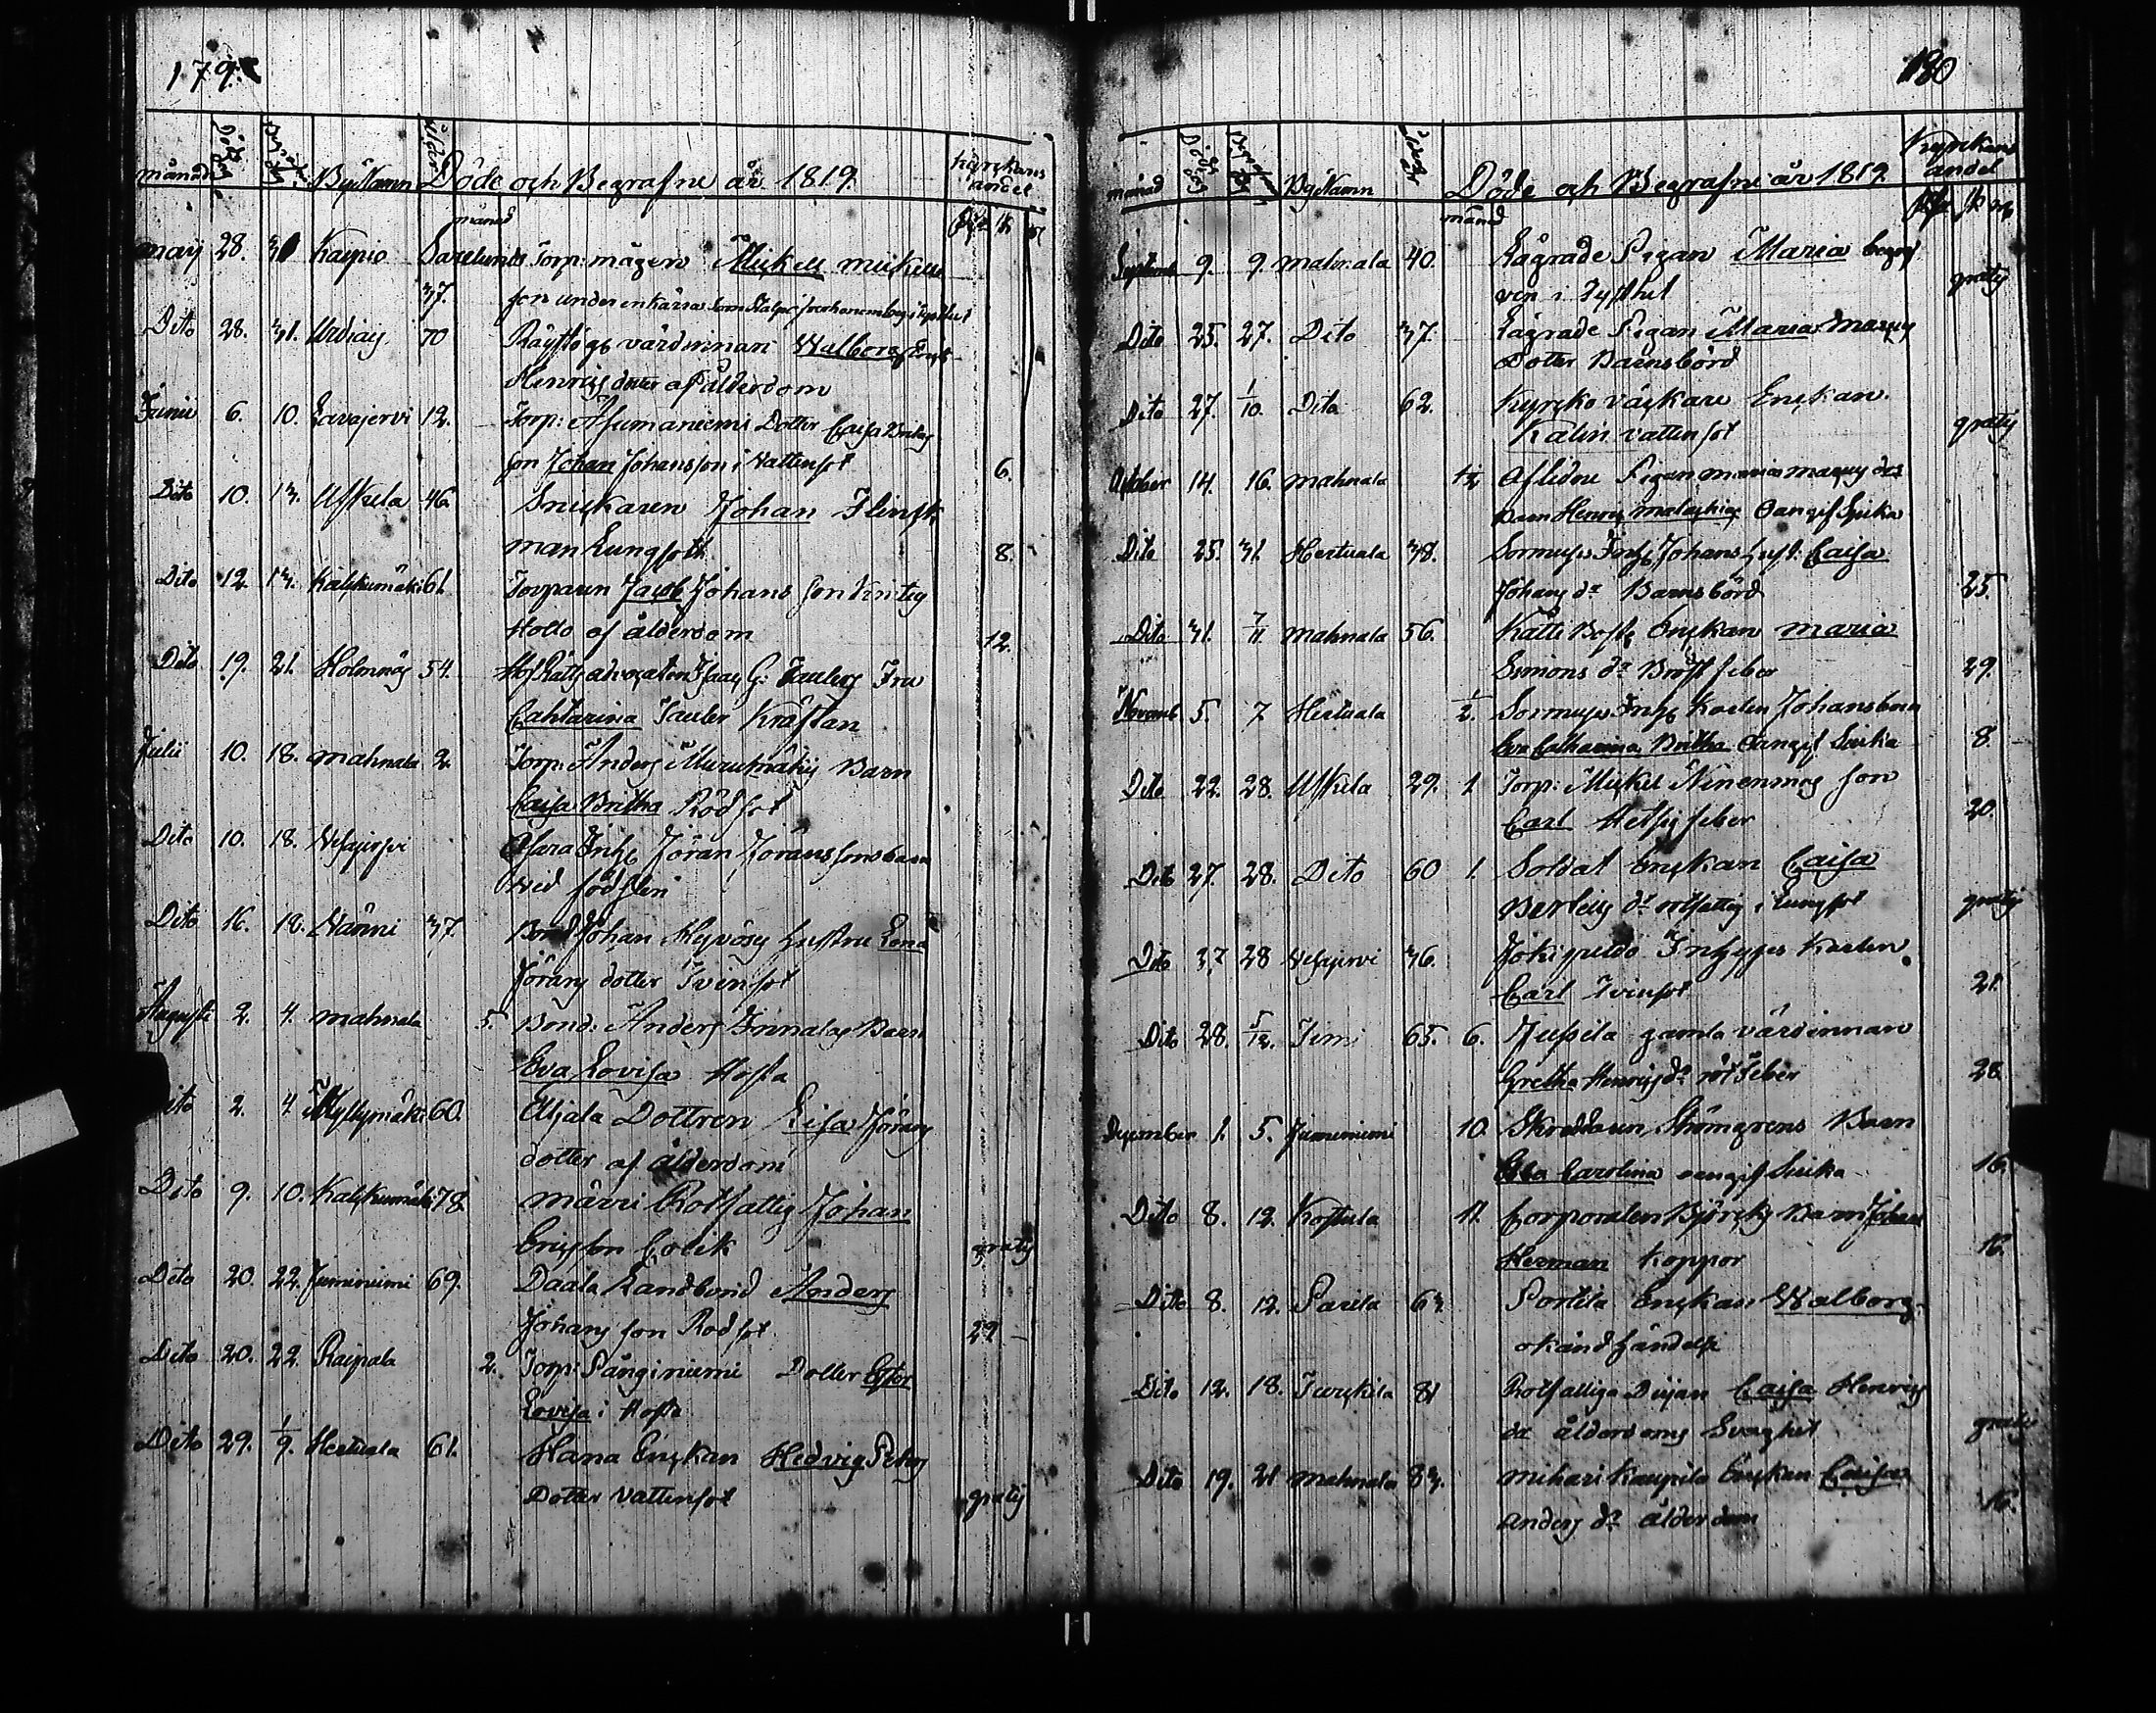 179.
månad Döds dag Begrafn. dag ByNamn Ålder Döde och Begrafne år 1819. kyrckans andel
månad
may 28. 31 Kaipio Torp: mågen Mickell mickells
37. son under en kärra
Dito 28. 31. Urdiais 70 värdinnan Walborg
Henrics dotter af ålderdom
Junii 6. 10. Lavajervi 12. Torp: Dotter Caisa
son Johan Johansson i Vattusot 6.
Dito 10. 13. Uskela 46. Snickaren Johan Flinck
man Lungsot 8.
Dito 12. 13. Kalckumäki 61. Torparen Jacob Johans son
Hollo af ålderdom 12.
Dito 19. 21. Holmnäs 54. HofRätts advocaten Isaac G: Tauler Fru
Cahtarina Tauler Kräftan
Julii 10. 18. mahnala 2. Torp: Anders Murumäkis Barn
Caisa Britha Rödsot
Dito 10. 18. Vesajervi Inh: Jöran Jöranssons barn
Wid födslen
Dito 16. 18. Nänni 37. Bond Johan hustru Lena
Jörans dotter Tvinsot
Augusti 2. 4. mahnala 5. Bond: Anders Innalas Barn
Eva Lovisa Hosta
Dito 2. 4. Myllymäki 60. Dottren Lisa Jörans
dotter af ålderdom
Dito 9. 10. Kalckumäki 78. märri Rotfattig Johan
Ericsson Colik gratis
Dito 20. 22. Juminiemi 69. Daala Landbond Anders
Johans son Rodsot 29
Dito 20. 22. Raipala 2. Torp: Pånginiemi Dotter Ester
Lovisa i Hosta
Dito 29. 1/9. Hertuala 61. Hana Enckan Hedvig
Dotter Vattusot gratis
180
månad Döds dag Begrafn dag ByNamn Ålder Döde och Begrafne år 1819 Kyrckans andel
månad
Septemb 9. 9. mahnala 40. Lägrade Pigan Maria begraf
ven i tysthet gratis
Dito 25. 27. Dito 37. Lägrade Pigan Maria
Dotter Barnsbörd
Dito 27. 1/10. Dito 62. Kyrcko väckare Enckan
Kalin vattusot gratis
October 14. 16. mahnala Aflidne Pigan maria
barn Henric malachias Oangif Siuka
Dito 25. 31. Hertuala 38. Inh: Johans hust: Caisa
Johans dr Barnsbörd 25.
Dito 31. 7/11 mahnala 56. Enckan maria
Simons dr Bröst feber 29.
Novemb 5. 7 Hertuala 1/2. Inh: Karlen Johans barn
Eva Catharina Britha Oangif Siuka 8.
Dito 22. 28. Uskela 29. 1 Torp: Mickel Ninenmas son
Carl Hetsig feber 20.
Dito 27. 28. Dito 60 1. Soldat Enckan Caisa
Bertils dr rotfattig i Lungsot gratis
Dito 27. 28 Vesajervi 36. Jokipuldo Inhyses Karlen
Carl Tvinsot 21.
Dito 28. 5/12. Timi 65. 6. Jussila gamla värdinnan
Gretha Henrics dr röt Feber 28.
December 1. 5. Juminiemi 10. Skreddaren Strömgrens Barn
Carolina oangif Siuka 16.
Dito 8. 12. Kostula 11. Corporalen Björcks Barn Johan
Herman Koppor 16.
Dito 8. 12. Parila 63. Portila Enckan Walborg
okänd händelse
Dito 12. 18. Turckila 81 Rotfattiga Pigan Caisa Henrics
dr ålderdoms Svaghet gratis
Dito 19. 21 mahnala 83. mihari Kaupila Enckan Caisa
anders dr ålderdom 16.